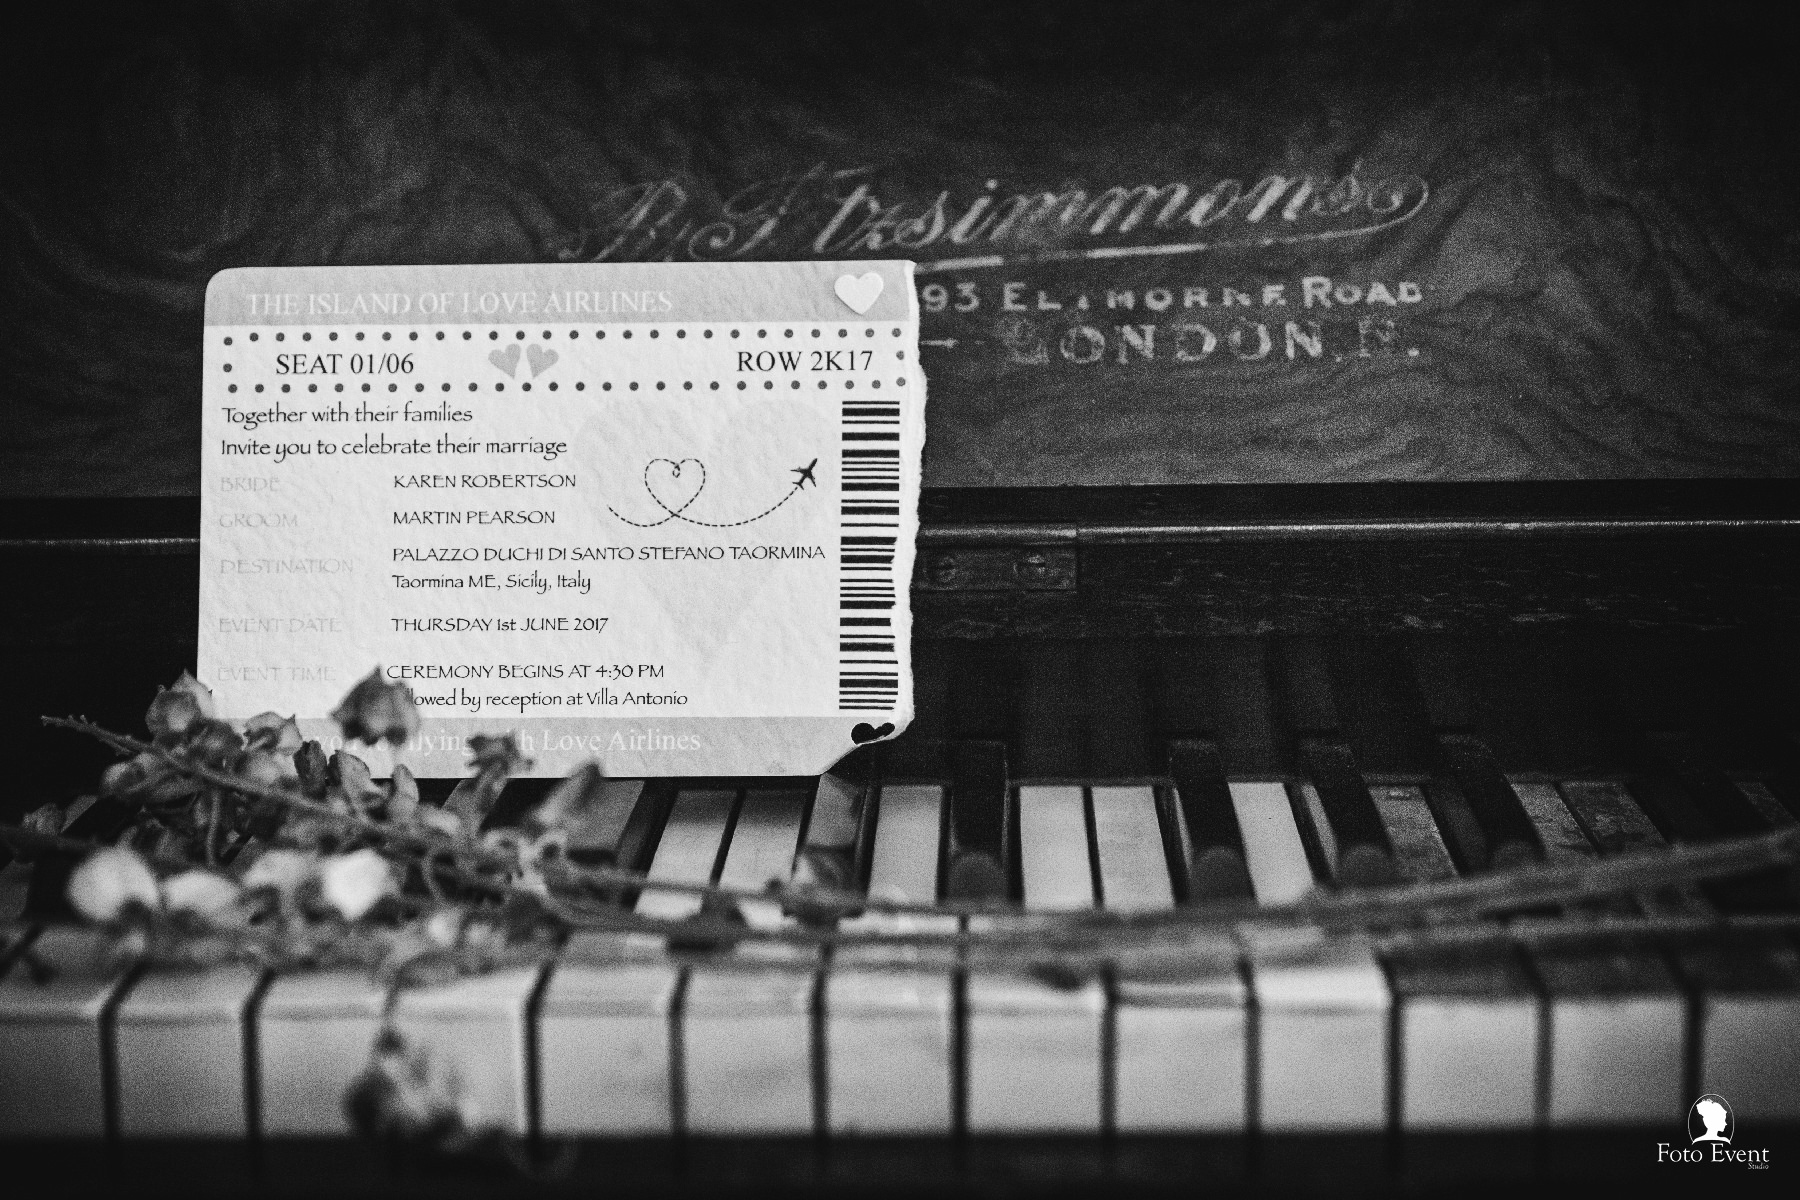 Fitzsimmons
93 ELTHORNE ROAD
LONDON, N.
THE ISLAND OF LOVE AIRLINES
SEAT 01/06 ROW 2K17
Together with their families
Invite you to celebrate their marriage
BRIDE KAREN ROBERTSON
GROOM MARTIN PEARSON
DESTINATION PALAZZO DUCHI DI SANTO STEFANO TAORMINA
Taormina ME, Sicily, Italy
EVENT DATE THURSDAY 1st JUNE 2017
EVENT TIME CEREMONY BEGINS AT 4:30 PM
lowed by reception at Villa Antonio
lying Love Airlines
Foto Event
Studio